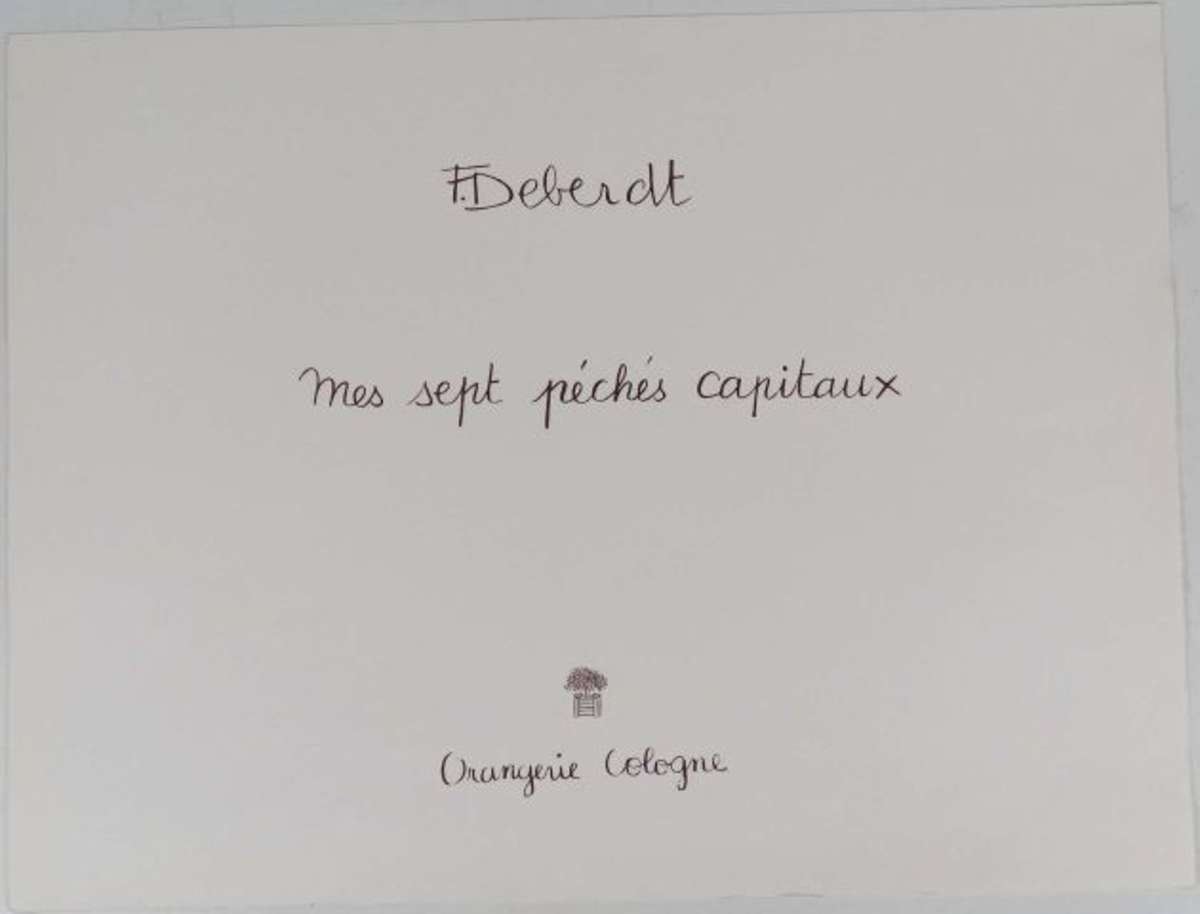 F. Deberdt
Mes sept péchés capitaux
Orangerie Cologne